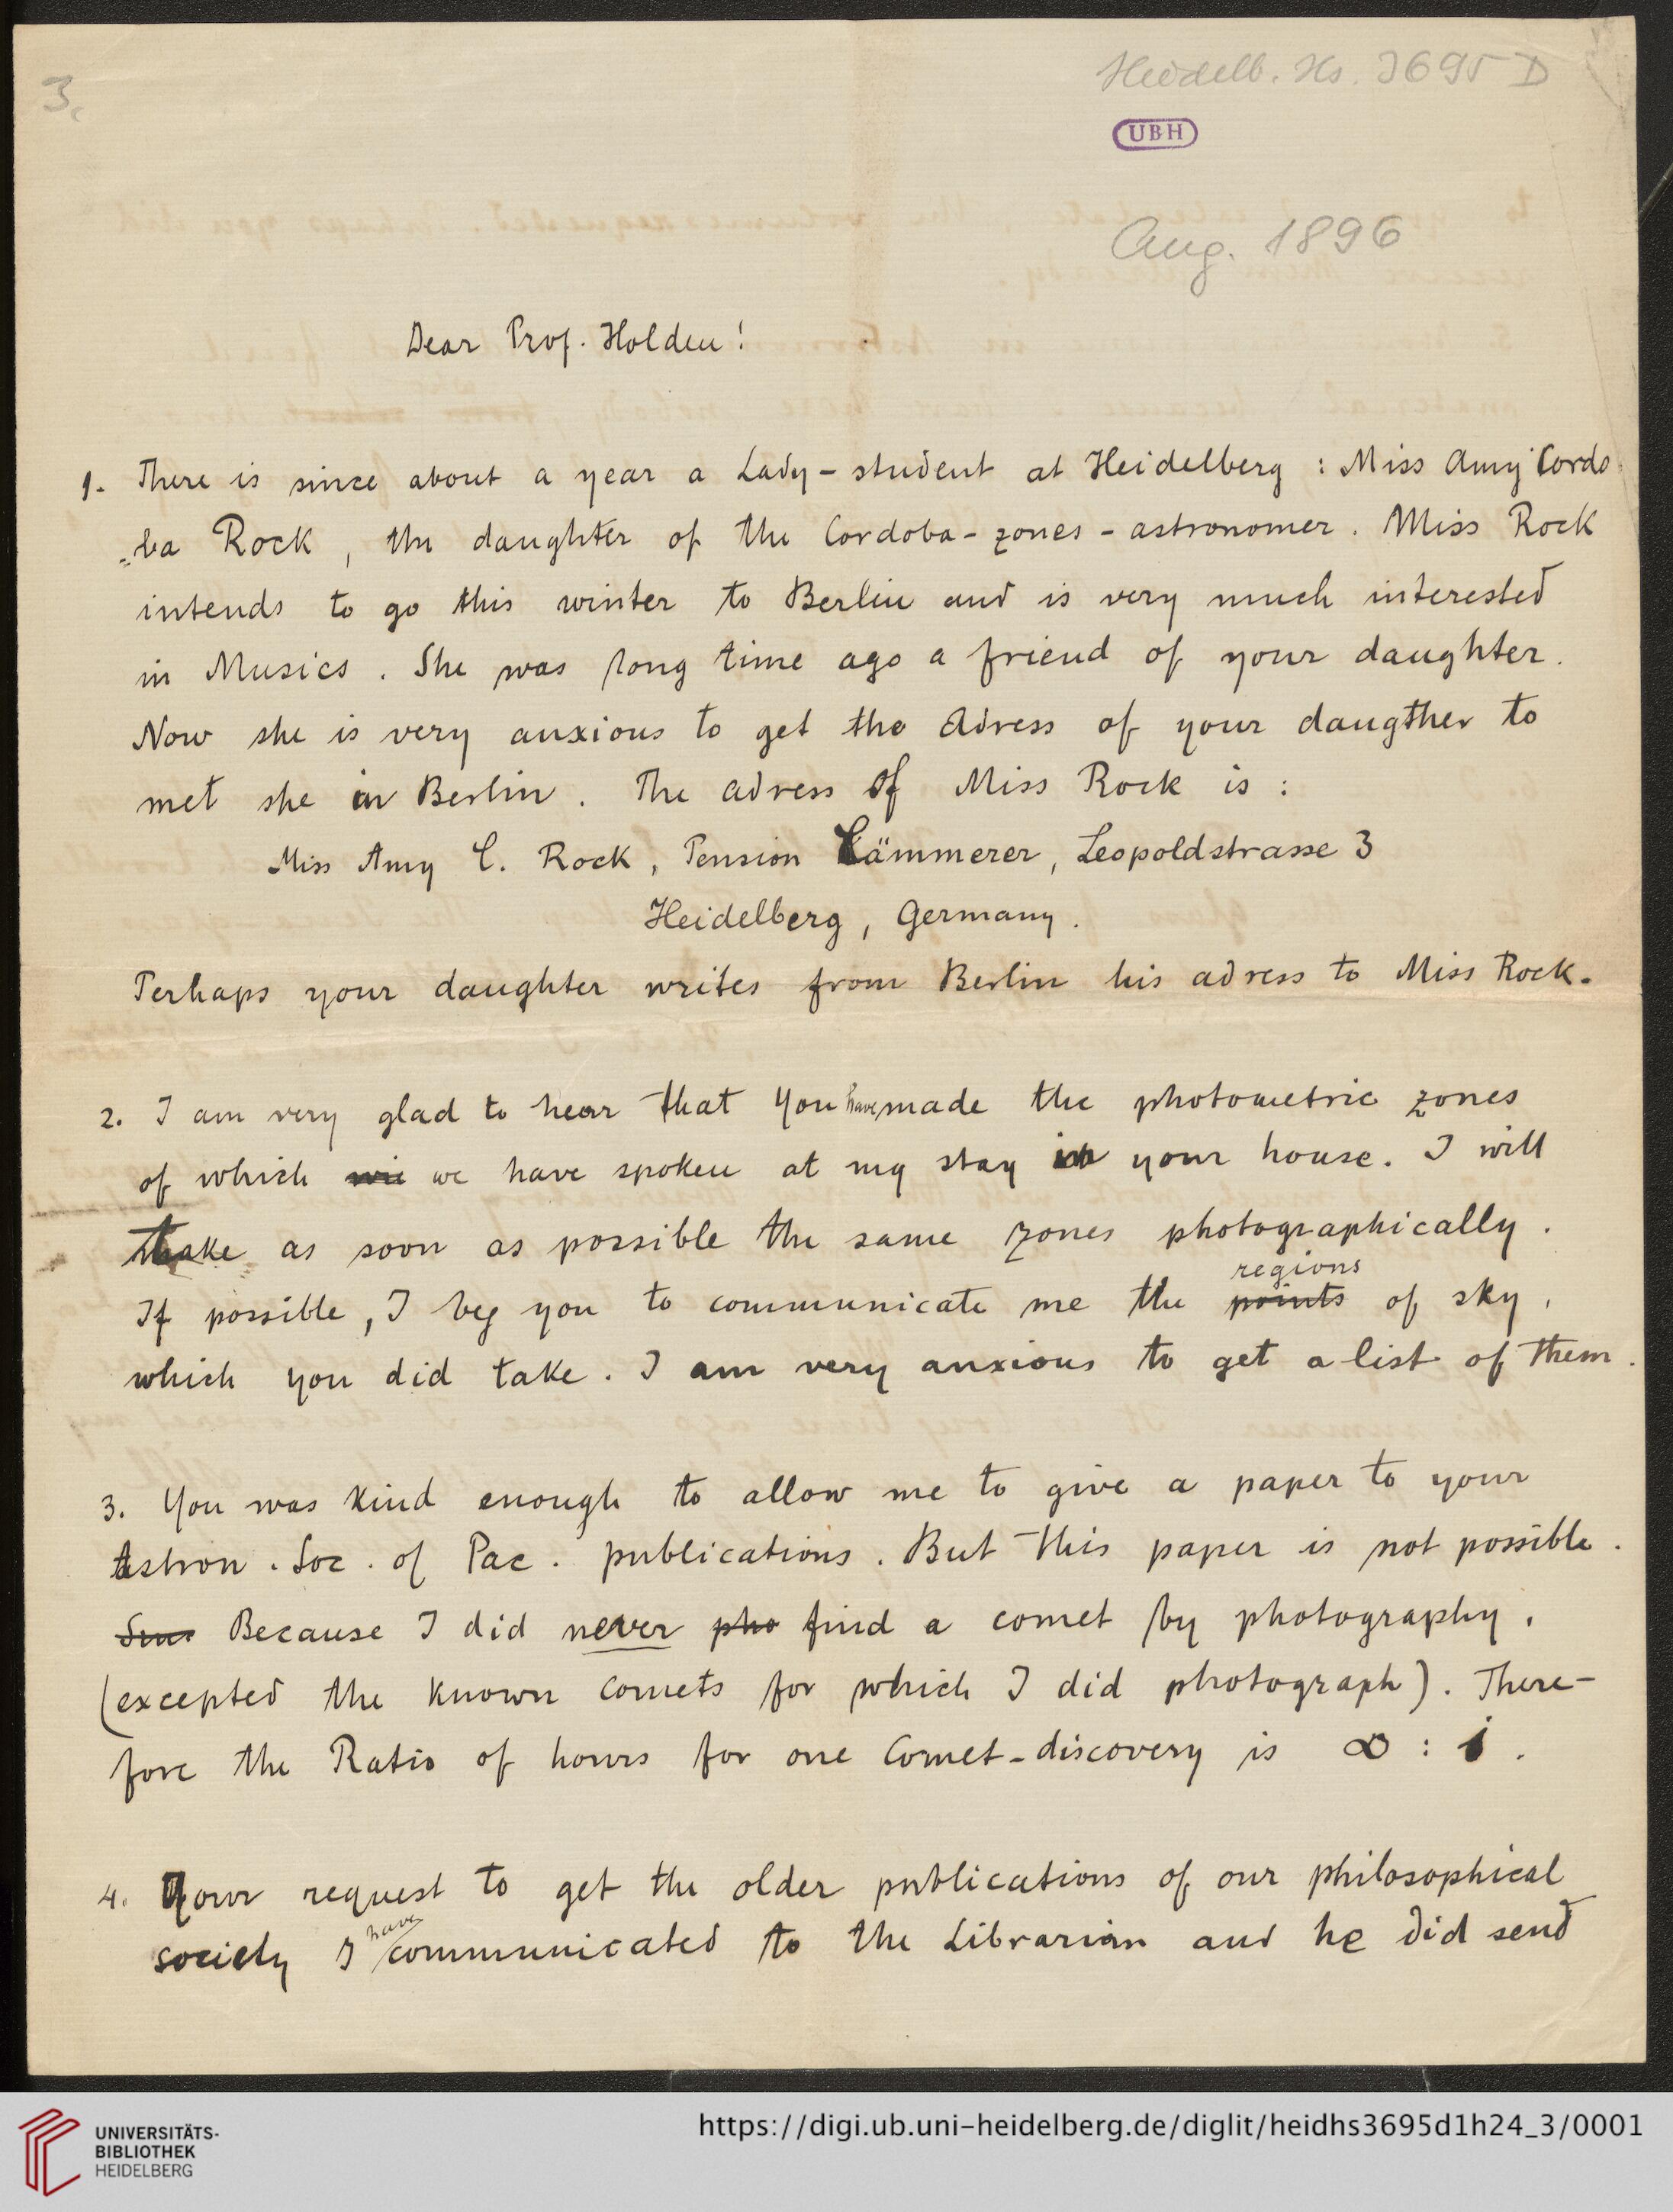 3.
Heidelb. Hs. 3695 D
UBH
Aug. 1896
Dear Prof. Holden!
1. There is since about a year a Lady-student at Heidelberg : Miss Amy Cordo
=ba Rock, the daughter of the Cordoba-zones-astronomer. Miss Rock
intends to go this winter to Berlin and is very much interested
in Musics. She was long time ago a friend of your daughter.
Now she is very anxious to get the adress of your daugther to
met she in Berlin. The adress of Miss Rock is :
Miss Amy C. Rock, Pension Cämmerer, Leopoldstrasse 3
Heidelberg, Germany.
Perhaps your daughter writes from Berlin his adress to Miss Rock.
2. I am very glad to hear that you have made the photometric zones
of which wie we have spoken at my stay in your house. I will
take as soon as possible the same zones photographically.
regions
If possible, I beg you to communicate me the points of sky,
which you did take. I am very anxious to get a list of them.
3. You was kind enough to allow me to give a paper to your
Astron. Soc. of Pac. publications. But this paper is not possible.
Because I did never pho find a comet by photography,
(excepted the known comets for which I did photograph). There-
fore the Ratio of hours for one Comet-discovery is ∞ : 1.
4. Your request to get the older publications of our philosophical
society I have communicated to the Librarian and he did send
UNIVERSITÄTS-
BIBLIOTHEK
HEIDELBERG
https://digi.ub.uni-heidelberg.de/diglit/heidhs3695d1h24_3/0001